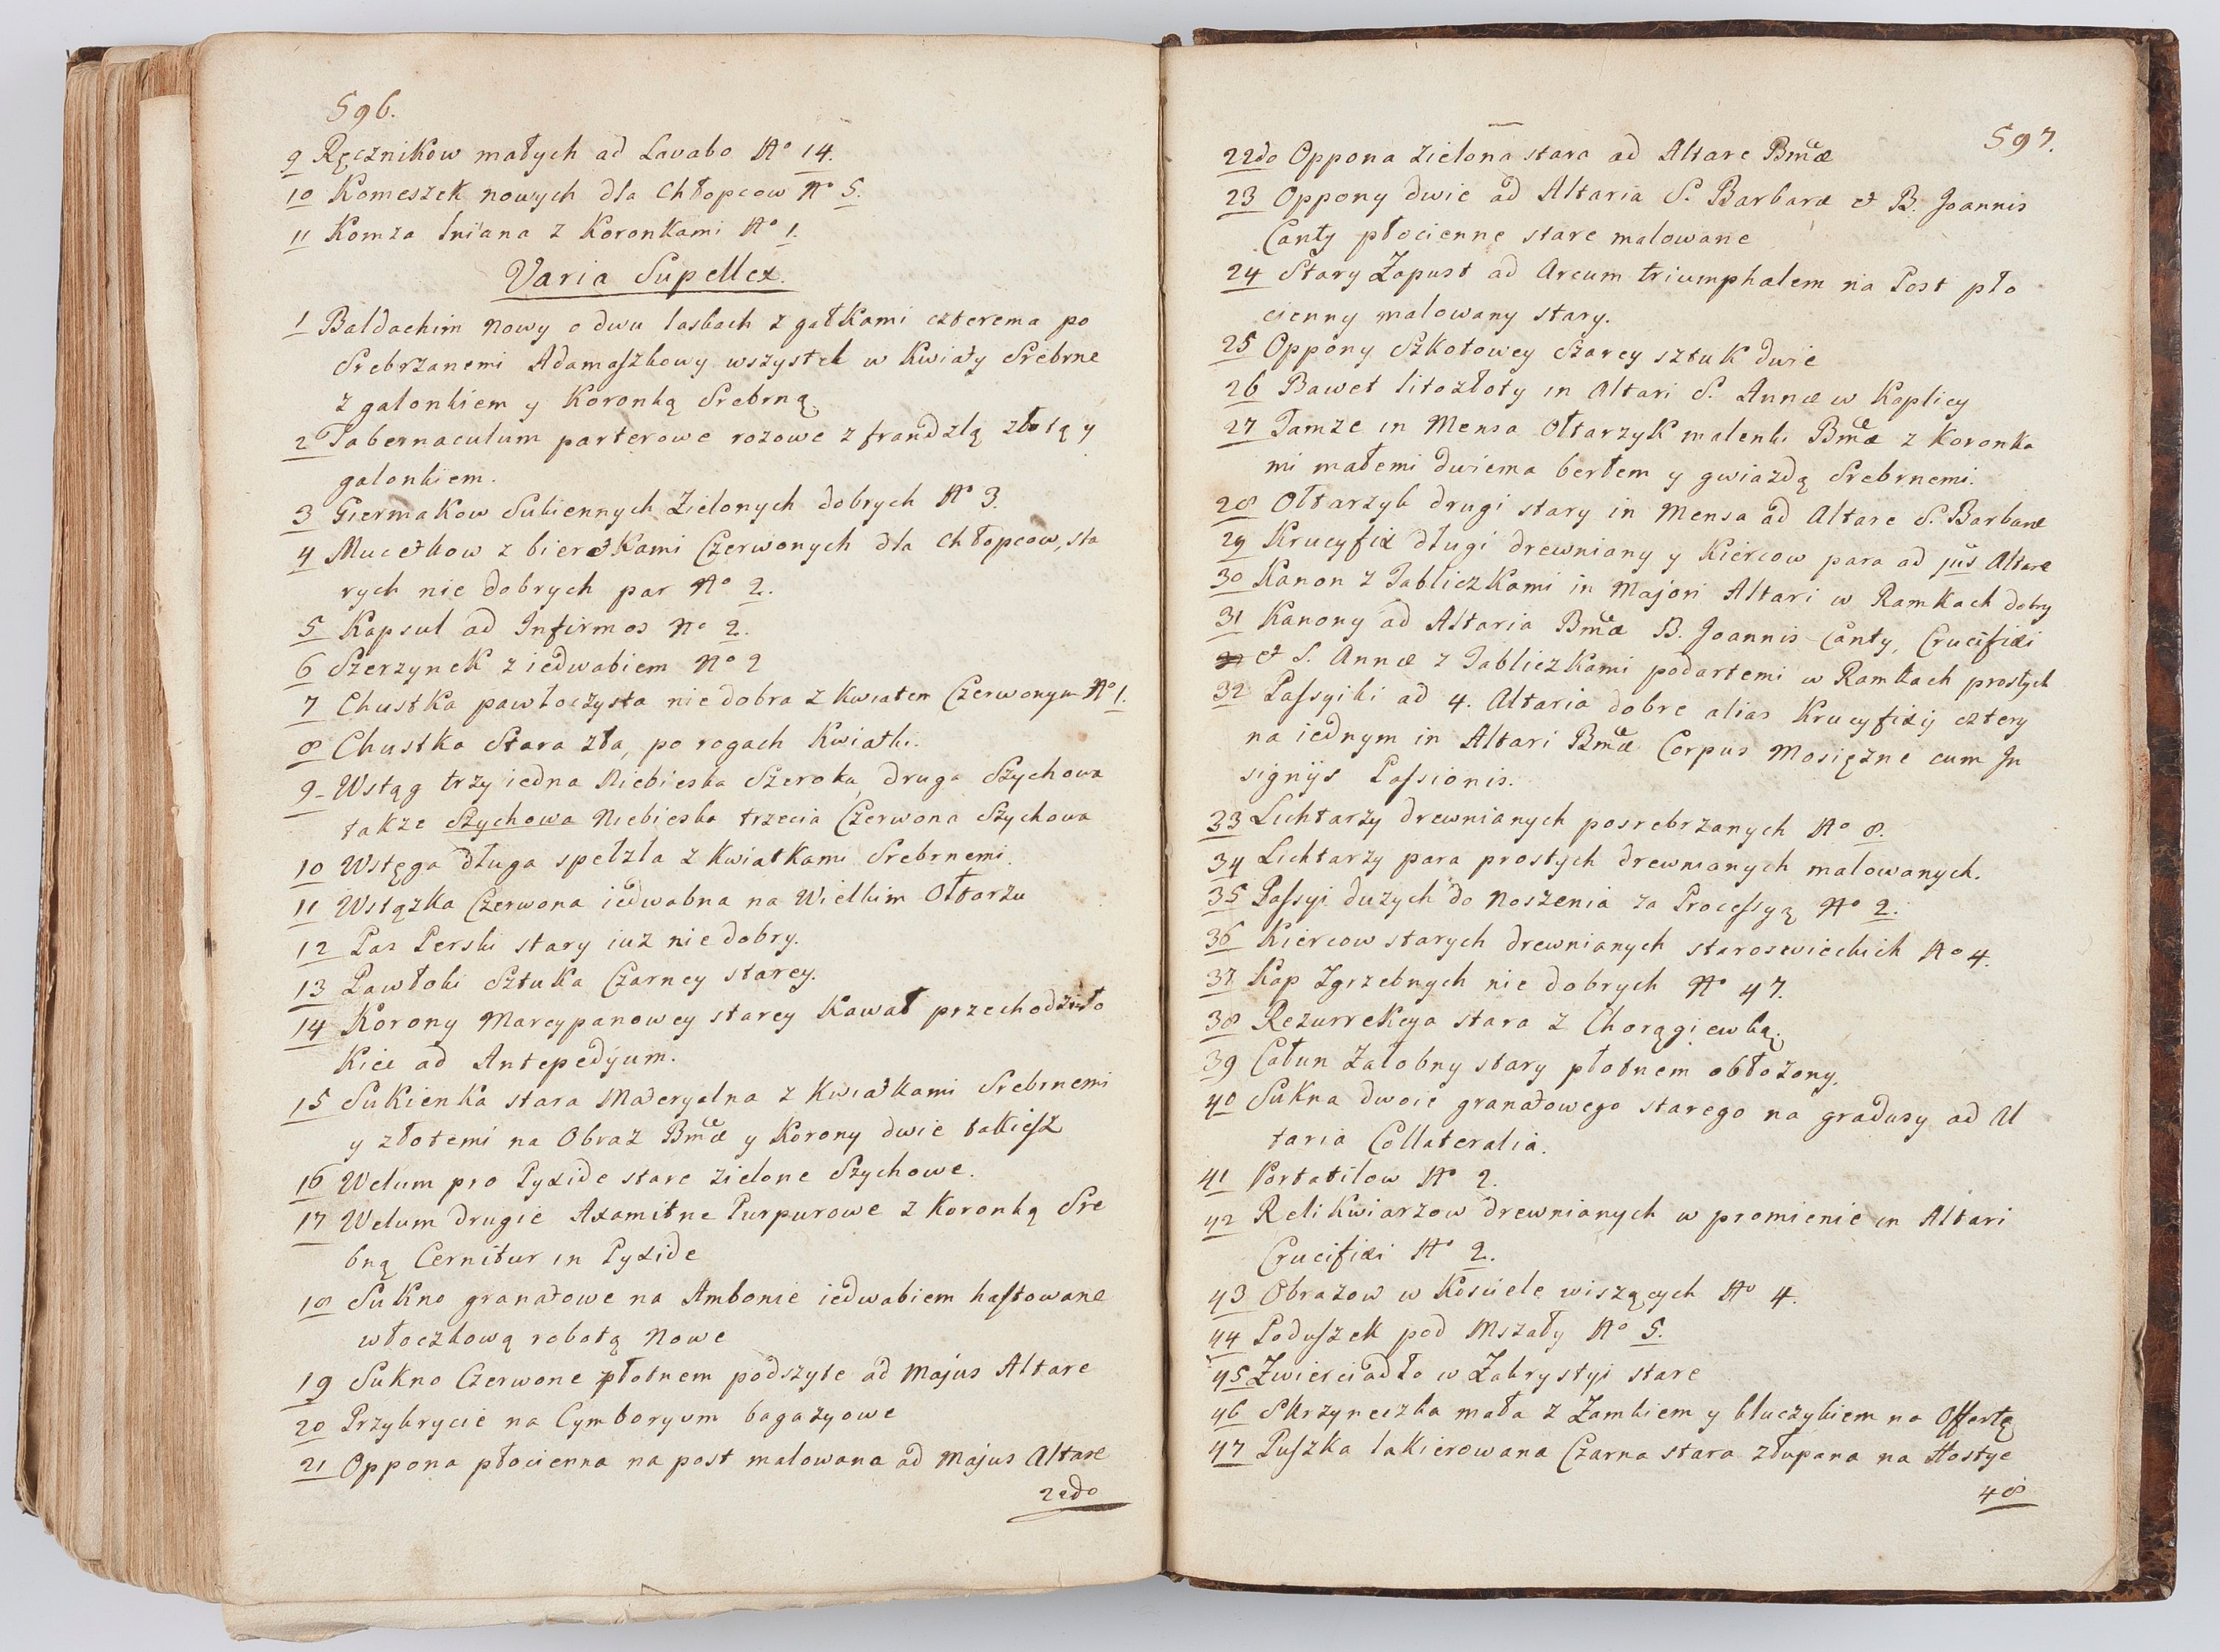 596.
9 Ręcznikow małych ad Lavabo No 14.
10 Komeszek nowych dla Chłopcow No 5.
11 Komza lniana z Koronkami No 1.
Varia Supellex.
1 Baldachim nowy o dwu laskach z gałkami czterema po
srebrzanemi Adamaszkowy wszystek w Kwiaty Srebrne
z galonkiem y Koronką Srebrną.
2 Tabernaculum parterowe rozowe z frandzlą złotą y
galonkiem.
3 Giermakow Sukiennych Zielonych dobrych No 3.
4 Mucetkow z bieretkami Czerwonych dla Chłopcow, sta
rych nie dobrych par No 2.
5 Kapsul ad Infirmos No 2.
6 Szerzynek z iedwabiem No 2
7 Chustka pawłoczysta nie dobra z Kwiatem Czerwonym No 1.
8 Chustka Stara zła, po rogach Kwiatki.
9 Wstąg trzy iedna Niebieska Szeroka, druga Szychowa
takze Szychowa Niebieska trzecia Czerwona Szychowa
10 Wstęga długa spełzła z Kwiatkami Srebrnemi.
11 Wstązka Czerwona iedwabna na Wielkim Ołtarzu
12 Pas Perski stary iuz nie dobry.
13 Pawłoki Sztuka Czarney starey.
14 Korony Marcypanowey starey Kawał
Kice ad Antepedyum.
15 Sukienka stara Materyalna z Kwiatkami Srebrnemi
y złotemi na Obraz Bmæ y Korony dwie takiesz
16 Welum pro Pyxide stare zielone Szychowe.
17 Welum drugie Axamitne Purpurowe z Koronką Sre
bną Cernitur in Pyxide
18 Sukno granatowe na Ambonie iedwabiem haftowane
włoczkową robotą Nowe
19 Sukno Czerwone płotnem podszyte ad Majus Altare
20 Przykrycie na Cymboryum bagazyowe
21 Oppona płocienna na post malowana ad Majus Altare
22do
597.
22do Oppona zielona stara ad Altare Bmæ
23 Oppony dwie ad Altaria S. Barbaræ et B. Joannis
Canty płocienne stare malowane
24 Stary Zapust ad Arcum triumphalem na Post pło
cienny malowany stary.
25 Oppony Szkotowey Szarey sztuk dwie
26 Bawet litozłoty in Altari S. Annæ w Kaplicy
27 Tamze in Mensa Ołtarzyk malenki Bmæ z Koronka
mi małemi dwiema berłem y gwiazdą Srebrnemi.
28 Ołtarzyk drugi stary in Mensa ad Altare S. Barbaræ
29 Krucyfix długi drewniany y Kiercow para ad jus Altare
30 Kanon z Tabliczkami in Majori Altari w Ramkach dobry
31 Kanony ad Altaria Bmæ B. Joannis Canty, Crucifixi
et S. Annæ z Tabliczkami podartemi w Ramkach prostych
32 Passyiki ad 4. Altaria dobre alias Krucyfixy cztery
na iednym in Altari Bmæ Corpus Mosięzne cum In
signijs Passionis.
33 Lichtarzy drewnianych posrebrzanych No 8.
34 Lichtarzy para prostych drewnianych malowanych.
35 Passyi duzych do Noszenia za Processyą No 2.
36 Kiercow starych drewnianych staroswieckich No 4.
37 Kap Zgrzebnych nie dobrych No 47.
38 Rezurrekcya stara z Chorągiewką.
39 Całun Załobny stary płotnem obłożony.
40 Sukna dwoie granatowego starego na gradusy ad Al
taria Collateralia.
41 Portatilow No 2.
42 Relikwiarzow drewnianych w promienie in Altari
Crucifixi No 2.
43 Obrazow w Kosciele wiszących No 4.
44 Poduszek pod Mszały No 5.
45 Zwierciadło w Zakrystyi stare
46 Skrzyneczka mała z Zamkiem y kluczykiem na Offertę
47 Puszka lakierowana Czarna stara złupana na Hostye
48